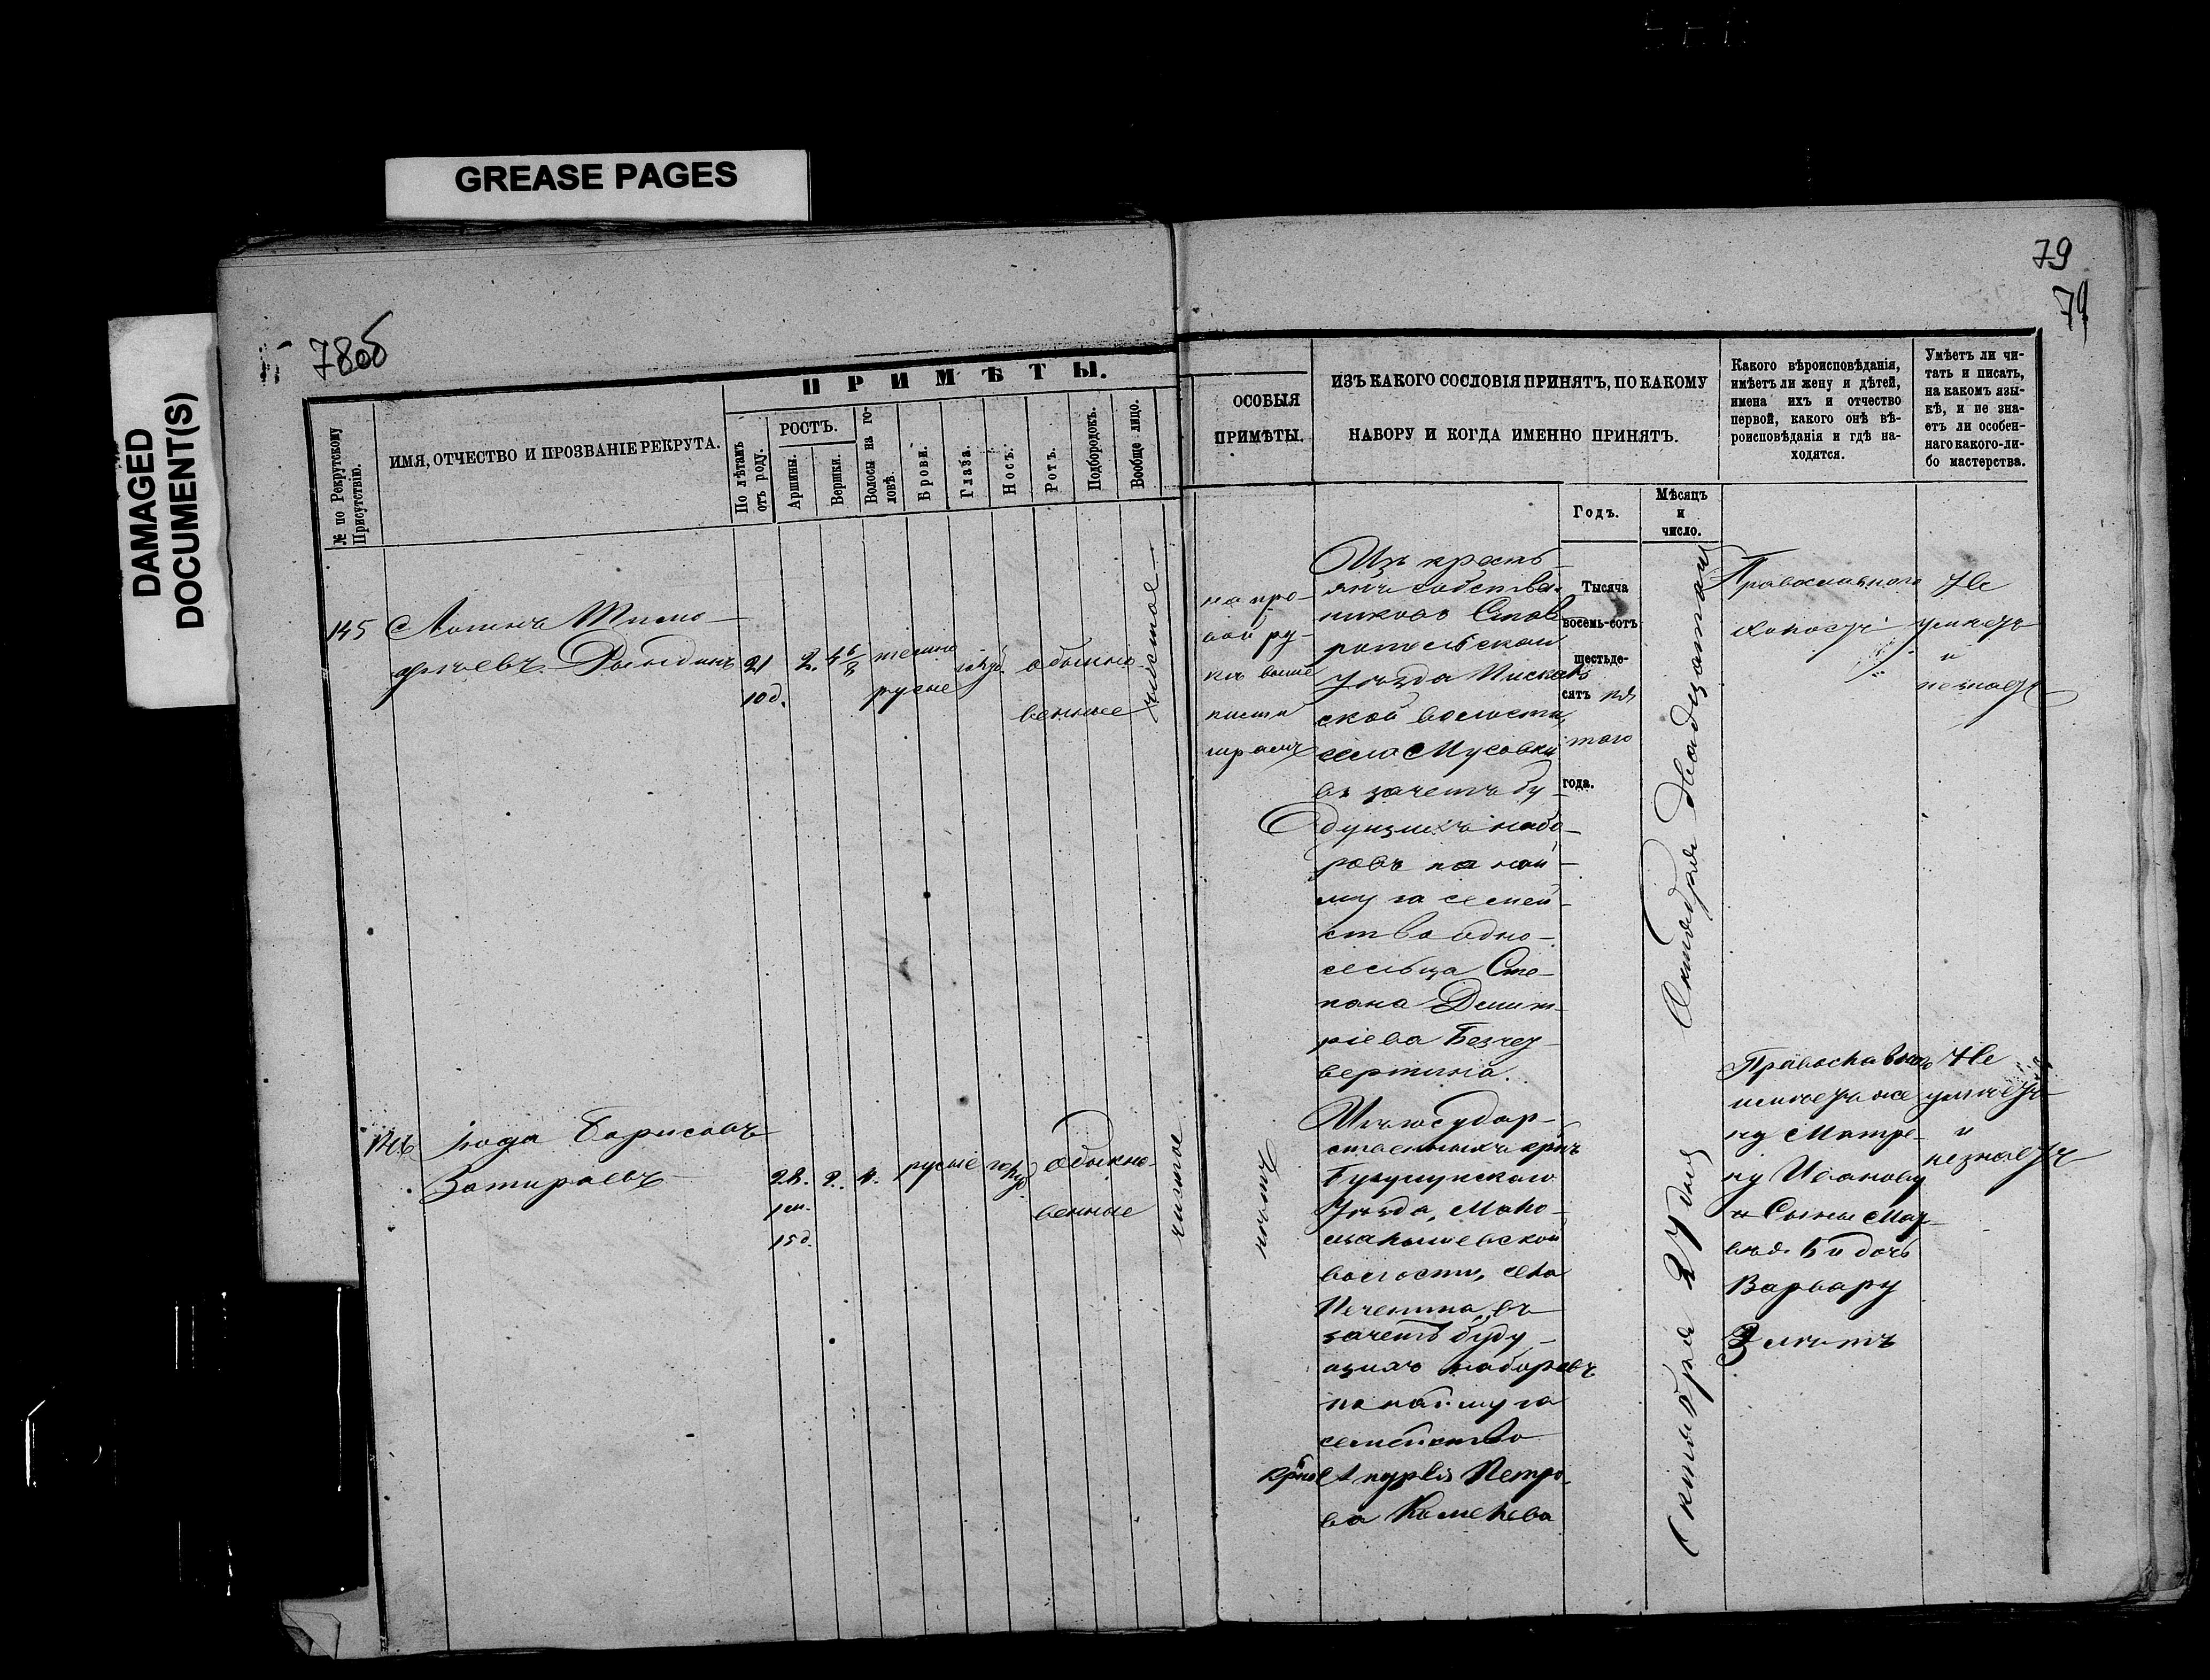 GREASE PAGES
DAMAGED
DOCUMENT(S)
78об
79
79
ПРИМѢТЫ.
№ по Рекрутскому
Присутствію.
ИМЯ, ОТЧЕСТВО И ПРОЗВАНІЕ РЕКРУТА.
По лѣтамъ
отъ роду.
РОСТЪ.
Аршины.
Вершки.
Волосы на го-
ловѣ.
Брови.
Глаза.
Носъ.
Ротъ.
Подбородокъ.
Вообще лицо.
ОСОБЫЯ
ПРИМѢТЫ.
ИЗЪ КАКОГО СОСЛОВІЯ ПРИНЯТЪ, ПО КАКОМУ
НАБОРУ И КОГДА ИМЕННО ПРИНЯТЪ.
Годъ.
Мѣсяцъ
и
число.
Какого вѣроисповѣданія,
имѣетъ ли жену и дѣтей,
имена ихъ и отчество
первой, какого онѣ вѣ-
роисповѣданія и гдѣ на-
ходятся.
Умѣетъ ли чи-
тать и писать,
на какомъ язы-
кѣ, и не зна-
етъ ли особен-
наго какого-ли-
бо мастерства.
145
21
10 д.
2.
4 6/8
темно
русые
обыкно-
венные
чистое
на пра-
вой ру-
кѣ выше
кисти
шрамъ
Изъ кресть-
янъ собствен-
никовъ Став-
ропольскаго
Уѣзда
ской волости,
села Мусовки
въ зачетъ бу-
дущихъ набо-
ровъ по най-
му за семей-
ство одно-
сельца Сте-
пана Димит-
ріева Безчет-
вертина.
Тысяча
восемь-сотъ
шестьде-
сятъ пя
таго
года.
Октября двадцатаго
Православнаго
холостъ
Не
умѣетъ
и
не знаетъ
146
Борисовъ
28.
1 м.
15 д.
2.
4.
русые
голуб
обыкно-
венные
чистое
нѣтъ
государ-
ственныхъ крнъ
Бузулукскаго
Уѣзда, Мало-
волости, села
въ
зачетъ буду-
щихъ наборовъ
по найму за
семейство
Петро-
ва
Октября 27 дня
Православнаго
имѣетъ же
ну Матре-
ну Иванову
и дочь
Варвару
Не
умѣетъ
и
не знаетъ